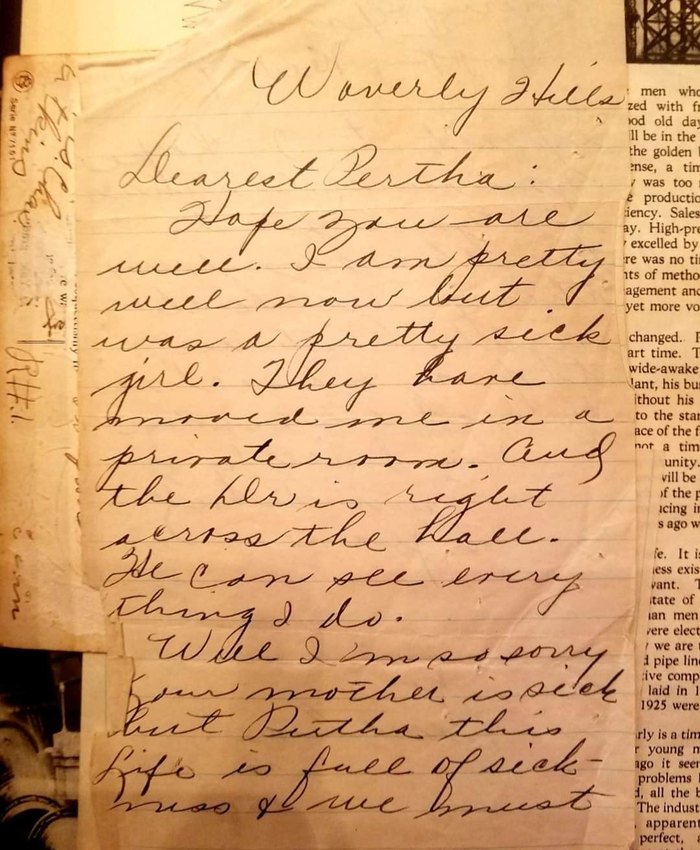 Waverly Hills
Dearest Pertha:
Hope you are
well. I am pretty
well now but
was a pretty sick
girl. They have
moved me in a
private room. And
the Dr is right
across the hall.
He can see every
thing I do.
Well I'm so sorry
your mother is sick
but Pertha this
Life is full of sick-
ness & we must
men who
zed with
ood old day
ll be in the
the golden
ense, a tim
was too
productio
iency. Sales
ay. High-pre
excelled by
re was no ti
ts of metho
agement and
yet more vo
changed.
art time. T
wide-awake
lant, his bu
ithout his
to the star
ace of the f
not a tim
unity.
will be
of the p
ucing in
s ago w
fe. It is
less exis
vant. T
state of
an men
vere elect
we are
d pipe lin
ive comp
laid in 1
1925 were
rly is a tim
young m
ago it seen
problems
d, all the b
The indust
, apparent
perfect, a